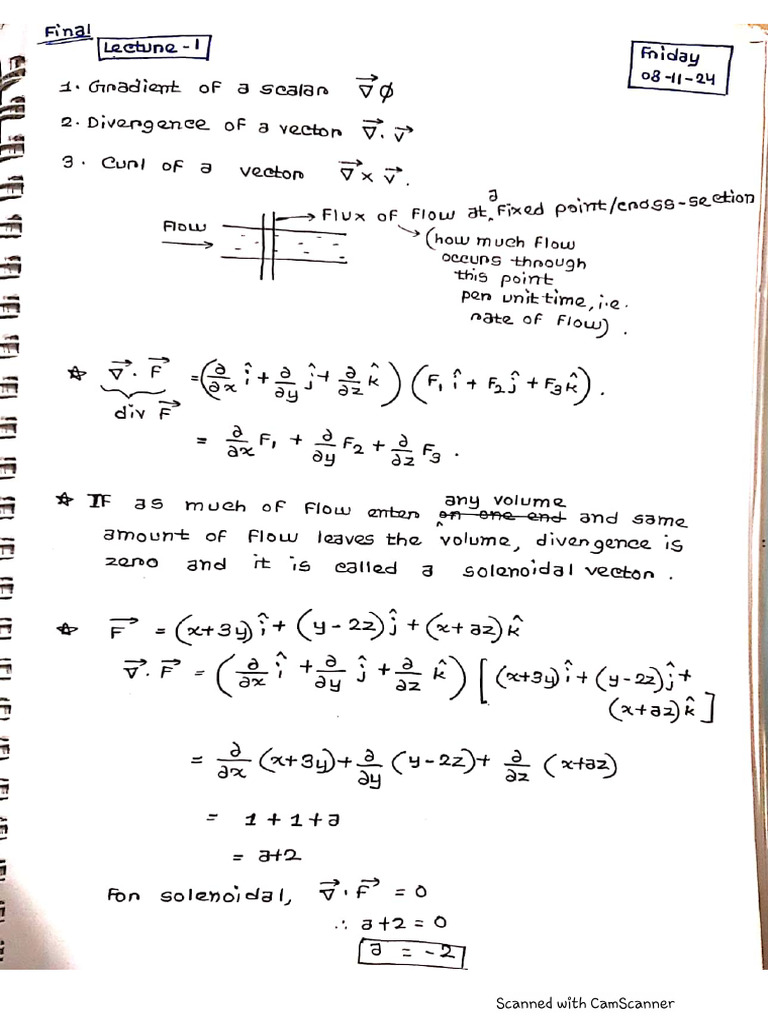 Final
Lecture - 1
Friday
08-11-24
1. Gradient of a scalar ∇⃗φ
2. Divergence of a vector ∇⃗ . v⃗
3. Curl of a vector ∇⃗ × v⃗.
Flow
→ Flux of flow at a fixed point/cross-section
(how much flow
occurs through
this point
per unit time, i.e.
rate of flow).
☆ ∇⃗ . F⃗ = (∂/∂x î + ∂/∂y ĵ + ∂/∂z k̂) (F₁ î + F₂ ĵ + F₃ k̂).
div F⃗
= ∂/∂x F₁ + ∂/∂y F₂ + ∂/∂z F₃.
☆ If as much of flow enter any volume ~~on one end~~ and same
amount of flow leaves the volume, divergence is
zero and it is called a solenoidal vector.
☆ F⃗ = (x+3y) î + (y-2z) ĵ + (x+az) k̂
∇⃗ . F⃗ = (∂/∂x î + ∂/∂y ĵ + ∂/∂z k̂) [(x+3y) î + (y-2z) ĵ +
(x+az) k̂]
= ∂/∂x (x+3y) + ∂/∂y (y-2z) + ∂/∂z (x+az)
= 1 + 1 + a
= a+2
For solenoidal, ∇⃗ . F⃗ = 0
∴ a+2 = 0
a = -2
Scanned with CamScanner